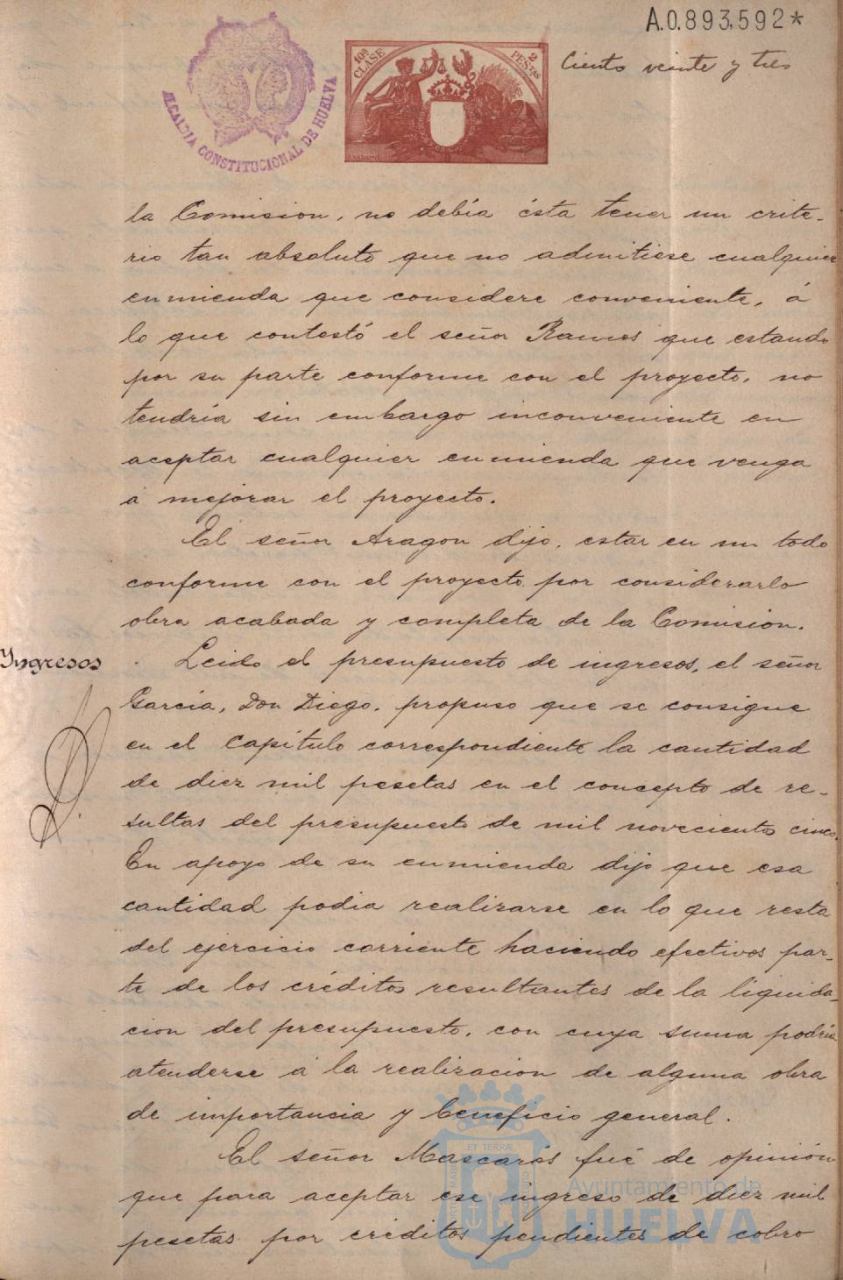 A.0.893,592*
10ª CLASE
2 PESETAS
Ciento veinte y tres
ALCALDIA CONSTITUCIONAL DE HUELVA
la Comision, no debía ésta tener un crite-
rio tan absoluto que no admitiese cualquier
enmienda que considere conveniente, á
lo que contestó el señor Ramos que estando
por su parte conforme con el proyecto, no
tendría sin embargo inconveniente en
aceptar cualquier enmienda que venga
á mejorar el proyecto.
El señor Aragon dijo, estar en un todo
conforme con el proyecto por considerarlo
obra acabada y completa de la Comision.
Ingresos
Leido el presupuesto de ingresos, el señor
García, Don Diego, propuso que se consigne
en el Capítulo correspondiente la cantidad
de diez mil pesetas en el concepto de re-
sultas del presupuesto de mil noveciento cinco.
En apoyo de su enmienda dijo que esa
cantidad podia realizarse en lo que resta
del ejercicio corriente haciendo efectivos par-
te de los créditos resultantes de la liquida-
cion del presupuesto, con cuya suma podría
atenderse á la realizacion de alguna obra
de importancia y beneficio general.
El señor Mascarós fué de opinión
que para aceptar ese ingreso de diez mil
pesetas por créditos pendientes de cobro
Ayuntamiento de
HUELVA